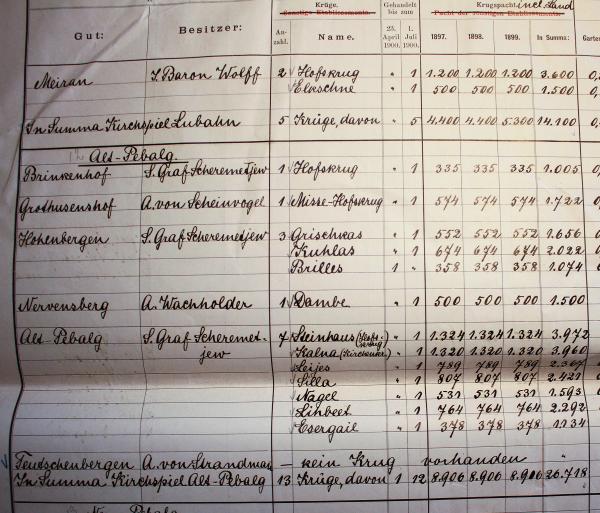 Krüge. Gehandelt bis zum Krugspacht incl. Land
Gut: Besitzer: Sonstige Etablissements. Pacht der sonstigen Etablissements.
Anzahl. Name. 23. April 1900. 1. Juli 1900. 1897. 1898. 1899. In Summa:
Meiran I. Baron Wolff 2 Hofskrug " 1 1.200 1.200 1.200 3.600 0,
" 1 500 500 500 1.500 0.
In Summa Kirchspiel Lubahn 5 Krüge, davon " 5 4.400 4.400 5.300 14.100 0,
Alt-Pebalg.
Brinkenhof S. Graf Scheremetjew 1 Hofskrug " 1 335 335 335 1.005
Grothusenshof A. von Scheinvogel 1 Misse-Hofskrug " 1 574 574 574 1.722
Hohenbergen S. Graf Scheremetjew 3 Grischkas " 1 552 552 552 1.656
Kuhlas " 1 674 674 674 2.022
Brilles 1 " 358 358 358 1.074
Nervensberg A. Wachholder 1 Dambe " 1 500 500 500 1.500
Alt-Pebalg S. Graf Scheremet- 7 Steinhaus " 1 1.324 1.324 1.324 3.972
jew Kalna " 1 1.320 1.320 1.320 3.960
Leijes " 1 789 789 789 2.367
Silla " 1 807 807 807 2.421
Nagel " 1 531 531 531 1.593
Lihbeet " 1 764 764 764 2.292
Esergail " 1 378 378 378 1.134
Teutschenbergen A. von Strandman — kein Krug vorhanden "
In Summa Kirchspiel Alt-Pebalg 13 Krüge, davon 1 12 8.906 8.906 8.906 26.718